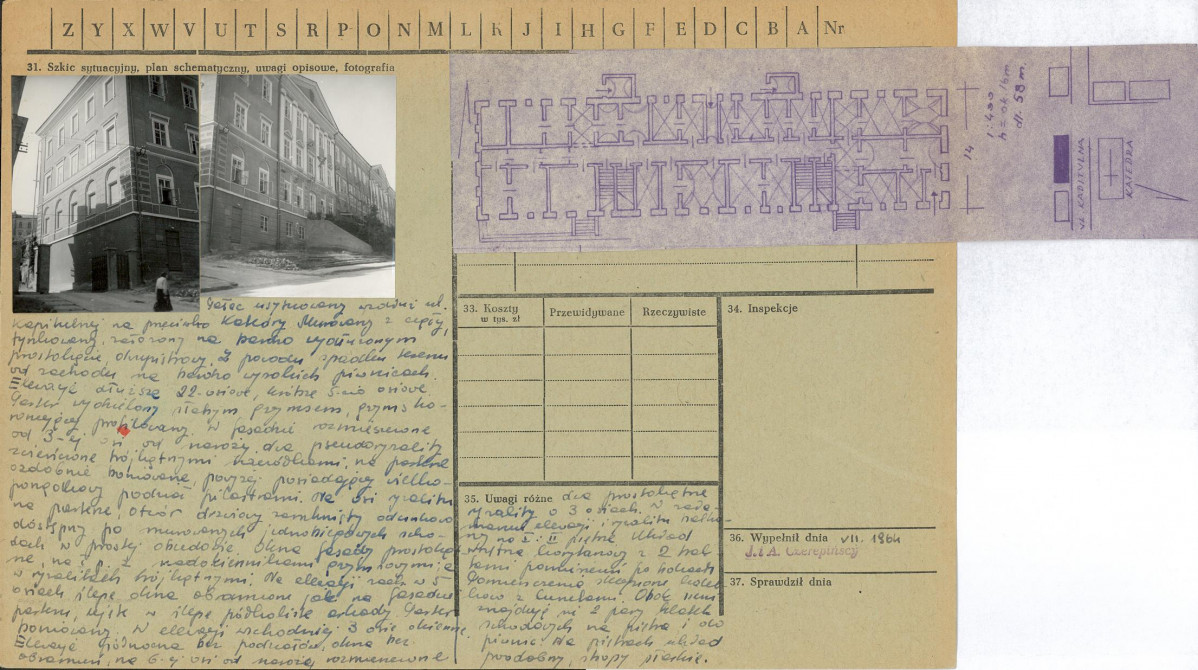 Z Y X W V U T S R P O N M L K J I H G F E D C B A Nr
31. Szkic sytuacyjny, plan schematyczny, uwagi opisowe, fotografia
1:400
h = ok 16 m
dł. 58 m.
14
ul. KAPITULNA
KATEDRA
Pałac usytuowany wzdłuż ul.
Kapitulnej na przeciwko Katedry. Murowany z cegły,
tynkowany, założony na bardzo wydłużonym
prostokącie, dwupiętrowy. Z powodu spadku terenu
od zachodu na bardzo wysokich piwnicach.
Elewacje dłuższe 22-osiowe, krótsze 5-cio osiowe.
Parter wydzielony stałym gzymsem, gzyms ko-
ronujący profilowany. W fasadzie rozmieszczone
od 3-ej osi od naroży dwa pseudoryzality
zwieńczone trójkątnymi naczółkami, na parterze
ozdobnie boniowane, powyżej posiadające wielko-
porządkowy podział pilastrami. Na osi ryzalitu
na parterze, otwór drzwiowy zamknięty odcinkowo
dostępny po murowanych jednobiegowych scho-
dach w prostej obudowie. Okna fasady prostoką-
tne, na I p. z nadokiennikami gzymsowymi, a
w ryzalitach trójkątnymi. Na elewacji zach. w 5
osiach ślepe okna obramione jak na fasadzie
parteru, ujęte w ślepe półkoliste arkady. Parter
boniowany. W elewacji wschodniej 3 osie okienne.
Elewacja północna bez podziałów, okna bez
obramień, na 6-ej osi od naroży rozmieszczone
33. Koszty
w tys. zł
Przewidywane
Rzeczywiste
34. Inspekcje
35. Uwagi różne dwa prostokątne
ryzality o 3 osiach. W
elewacji i ryzalitu
na I i II piętrze. Układ
wnętrz korytarzowy z 2 trak-
tami pomieszczeń po bokach.
Pomieszczenia sklepione
z lunetami. Obok
znajdują się 2 pary klatek
schodowych na piętra i do
piwnic. Na piętrach układ
podobny, stropy płaskie.
36. Wypełnił dnia VII. 1964
J. i A. Czerepińscy
37. Sprawdził dnia